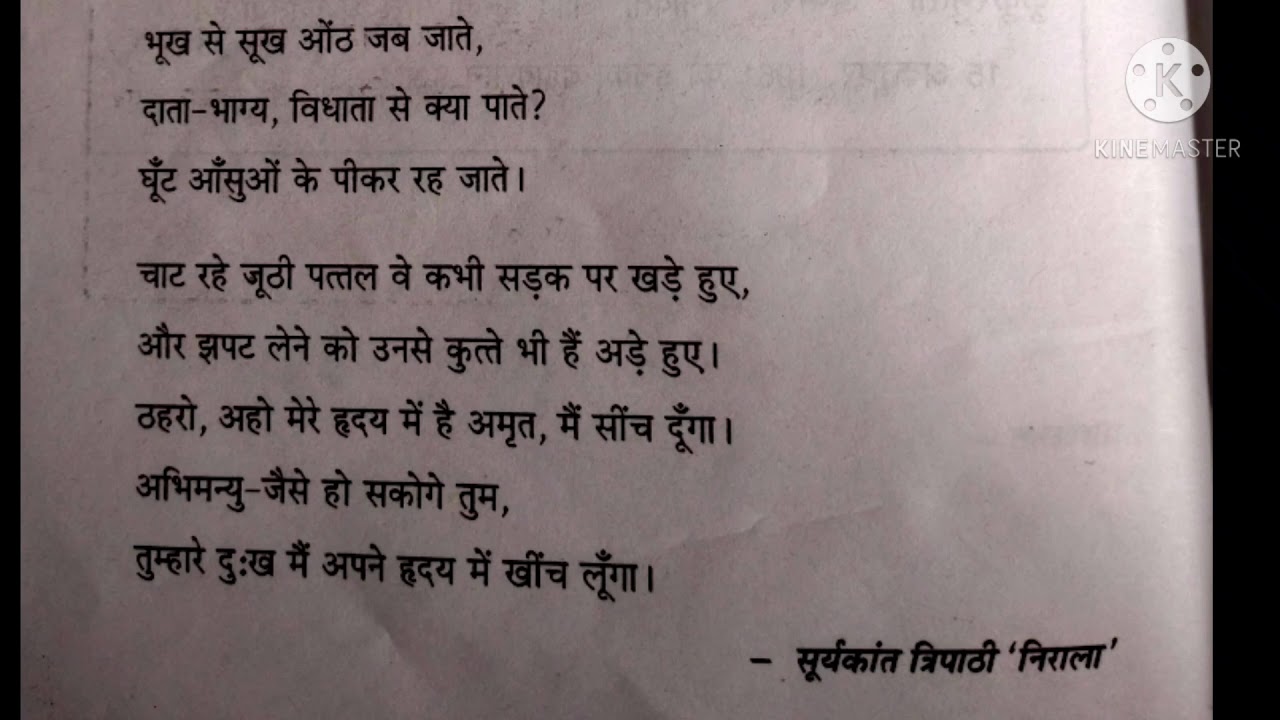 भूख से सूख ओंठ जब जाते,
दाता-भाग्य, विधाता से क्या पाते?
घूँट आँसुओं के पीकर रह जाते।
चाट रहे जूठी पत्तल वे कभी सड़क पर खड़े हुए,
और झपट लेने को उनसे कुत्ते भी हैं अड़े हुए।
ठहरो, अहो मेरे हृदय में है अमृत, मैं सींच दूँगा।
अभिमन्यु-जैसे हो सकोगे तुम,
तुम्हारे दुःख मैं अपने हृदय में खींच लूँगा।
– सूर्यकांत त्रिपाठी 'निराला'
K
KINEMASTER